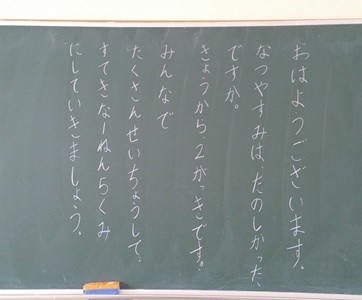 おはようございます。
なつやすみは、たのしかった
ですか。
きょうから、2がっきです。
みんなで
たくさんせいちょうして、
すてきな一ねんらくみ
にしていきましょう。